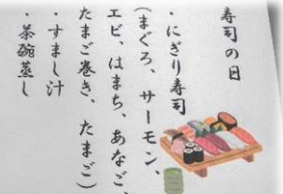 寿司の日
・にぎり寿司
(まぐろ、サーモン、
エビ、はまち、あなご、
たまご巻き、たまご)
・すまし汁
・茶碗蒸し